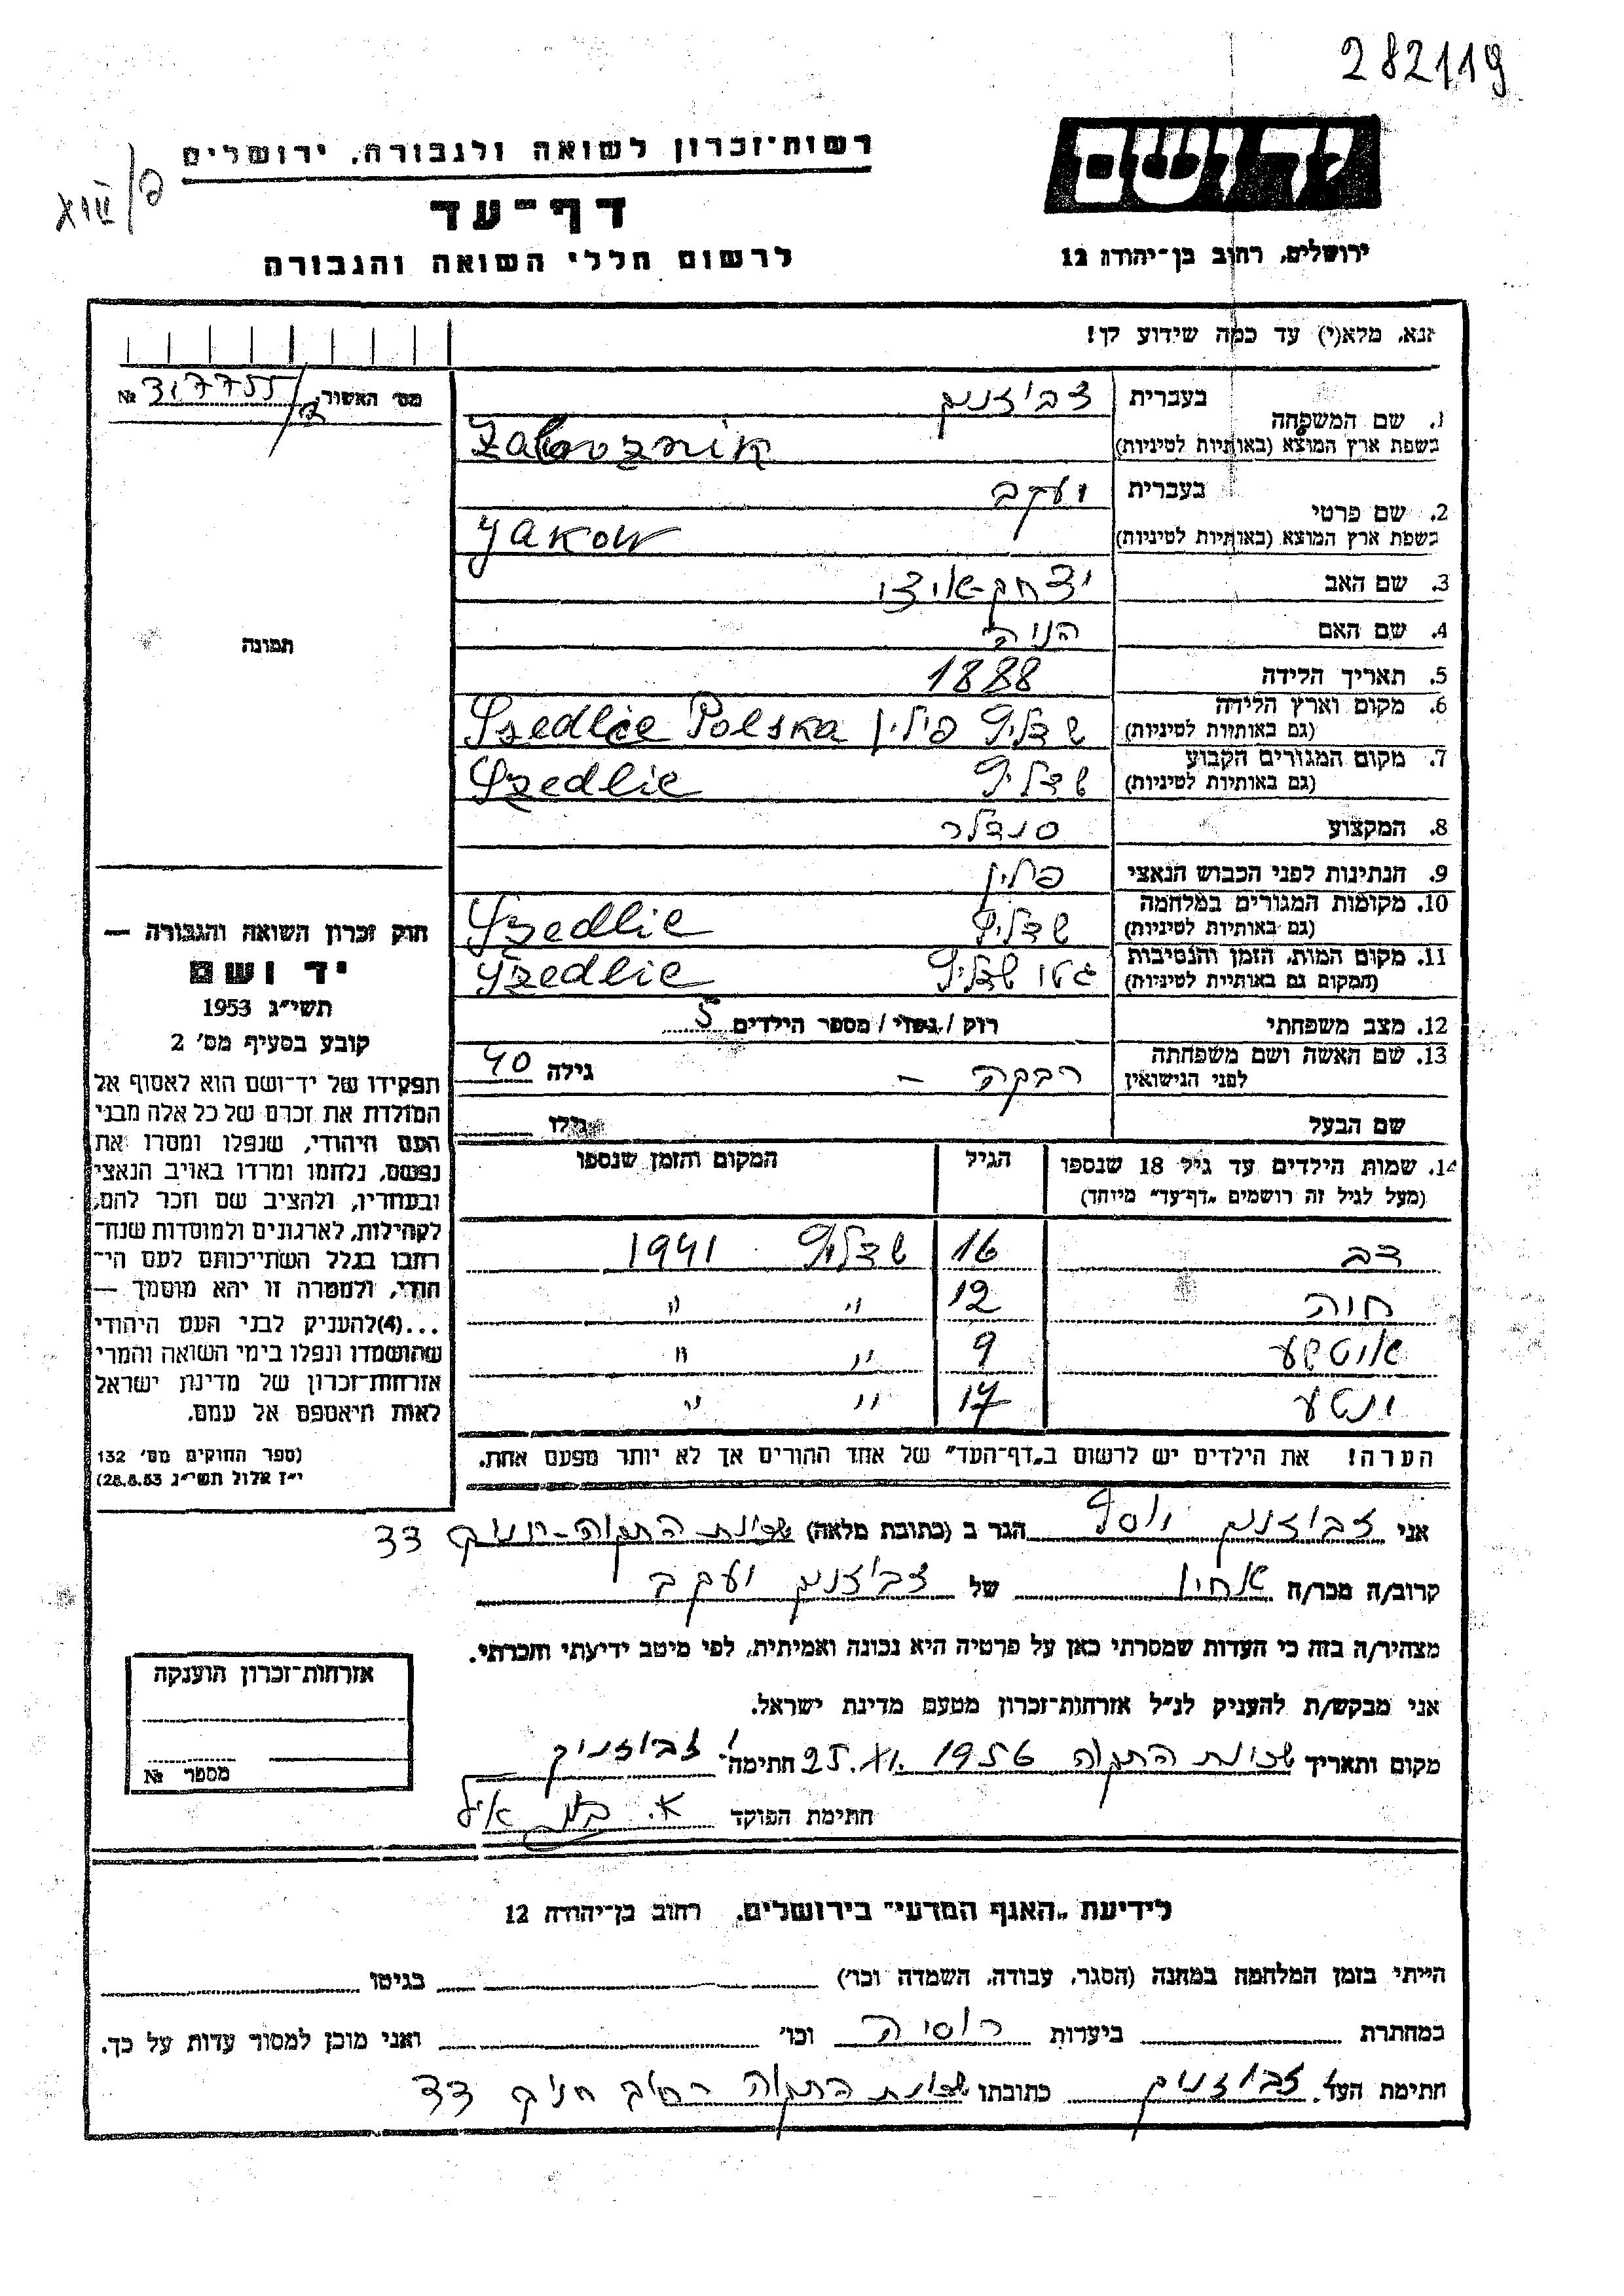 282119
יד ושם
ירושלים, רחוב בן־יהודה 12
רשות־זכרון לשואה ולגבורה, ירושלים
דף־עד
לרשום חללי השואה והגבורה
XIV/
אנא, מלא(י) עד כמה שידוע לך!
מס׳ האשור № 317755/
1. שם המשפחה
בעברית זבוזניק
בשפת ארץ המוצא (באותיות לטיניות) Zaboznik
2. שם פרטי
בעברית יעקב
בשפת ארץ המוצא (באותיות לטיניות) Yakow
3. שם האב יצחק-איצי
4. שם האם
5. תאריך הלידה 1888
6. מקום וארץ הלידה
(גם באותיות לטיניות) שדליץ פולין Szedlice Polska
7. מקום המגורים הקבוע
(גם באותיות לטיניות) שדליץ Szedlic
8. המקצוע סנדלר
9. הנתינות לפני הכבוש הנאצי פולין
10. מקומות המגורים במלחמה
(גם באותיות לטיניות) שדליץ Szedlic
11. מקום המות, הזמן והנסיבות
(המקום גם באותיות לטיניות) גטו שדליץ Szedlic
12. מצב משפחתי רוק / נשוי / מספר הילדים 5
13. שם האשה ושם משפחתה
לפני הנישואין רבקה – גילה 40
שם הבעל גילו
14. שמות הילדים עד גיל 18 שנספו הגיל המקום והזמן שנספו
(מעל לגיל זה רושמים „דף־עד” מיוחד)
דב 16 שדליץ 1941
חוה 12 " "
איטקע 9 " "
יוטע 17 " "
הערה! את הילדים יש לרשום ב„דף־העד” של אחד ההורים אך לא יותר מפעם אחת.
תמונה
חוק זכרון השואה והגבורה —
יד ושם
תשי״ג 1953
קובע בסעיף מס׳ 2
תפקידו של יד־ושם הוא לאסוף אל
המולדת את זכרם של כל אלה מבני
העם היהודי, שנפלו ומסרו את
נפשם, נלחמו ומרדו באויב הנאצי
ובעוזריו, ולהציב שם וזכר להם,
לקהילות, לארגונים ולמוסדות שנח־
רבו בגלל השתייכותם לעם הי־
הודי, ולמטרה זו יהא מוסמך —
...(4)להעניק לבני העם היהודי
שהושמדו ונפלו בימי השואה והמרי
אזרחות־זכרון של מדינת ישראל
לאות היאספם אל עמם.
(ספר החוקים מס׳ 132
י״ז אלול תשי״ג 28.8.53)
אני זבוזניק יוסף הגר ב (כתובת מלאה) שכונת התקוה- 33
קרוב/ה מכר/ה אחיו של זבוזניק יעקב
מצהיר/ה בזה כי העדות שמסרתי כאן על פרטיה היא נכונה ואמיתית, לפי מיטב ידיעתי והכרתי.
אני מבקש/ת להעניק לנ״ל אזרחות־זכרון מטעם מדינת ישראל.
מקום ותאריך שכונת התקוה 25.XI.1956 חתימה י. זבוזניק
חתימת הפוקד
אזרחות־זכרון הוענקה
מספר №
לידיעת „האגף המדעי” בירושלים, רחוב בן־יהודה 12
הייתי בזמן המלחמה במחנה (הסגר, עבודה, השמדה וכו׳) בגיטו
במחתרת ביערות רוסיה וכו׳ ואני מוכן למסור עדות על כך.
חתימת העד י. זבוזניק כתובתו שכונת התקוה רחוב 33